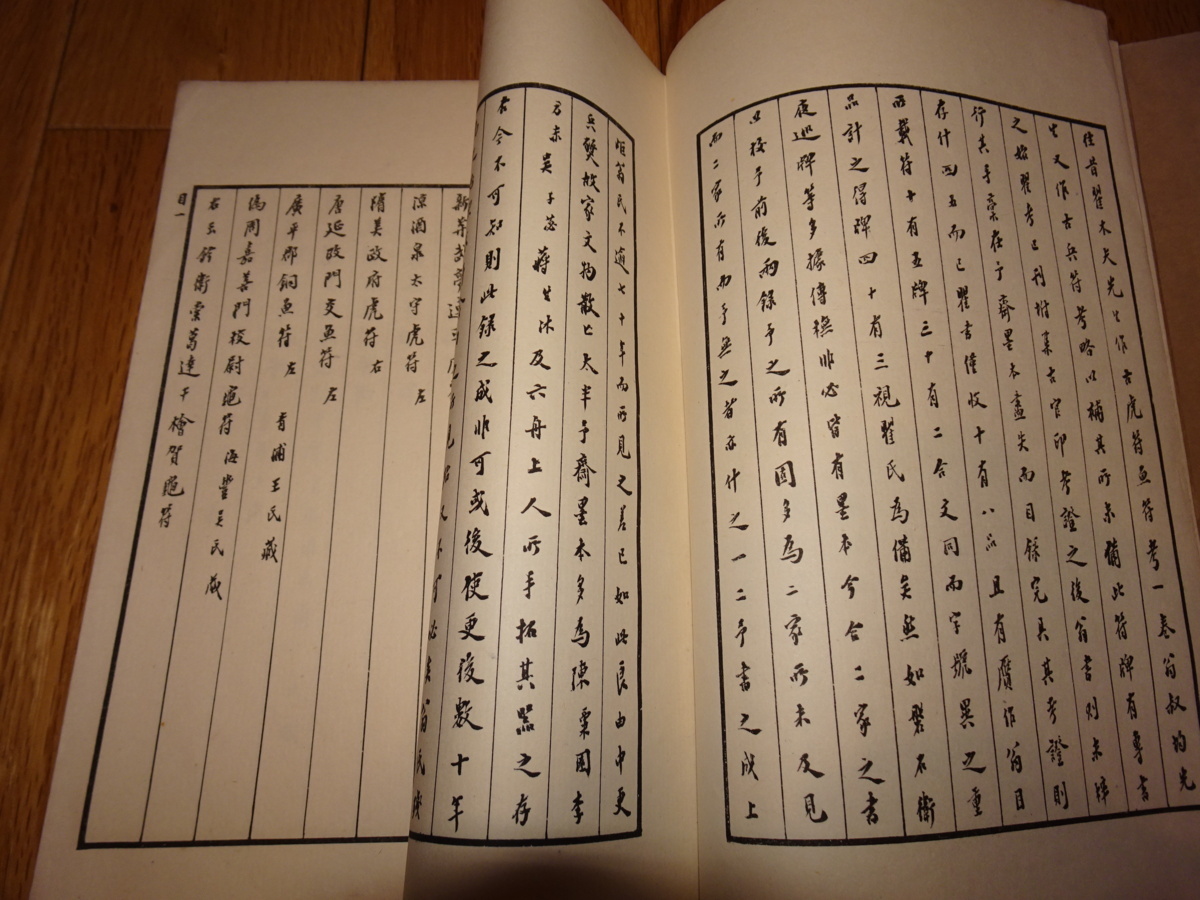 往昔瞿木夫先生作古虎符魚符考一卷翁叔均先
生又作古兵符考略以補其所未備此符牌有專書
之始瞿考已刊附集古官印考證之後翁書則未梓
行其手稾在予齋墨本盡失而目錄完具其考證則
存什四五而已瞿書僅收十有八品且有贗作翁目
所載符十有五牌三十有二合文同而字號異之重
品計之得牌四十有三視瞿氏為備矣然如磐石衛
夜巡牌等多據傳橅非必皆有墨本今合二家之書
以校予前後兩錄予之所有固多為二家所未及見
而二家所有而予無之者亦什之一二予書之成上
距翁氏不逾七十年而所見之差已如此良由中更
兵燹故家文物散亡太半予齋墨本多為陳粟園李
方赤吳子苾蔣生沐及六舟上人所手拓其器之存
否今不可知則此錄之成非可或後使更後數十年
涼酒泉太守虎符 左
隋美政府虎符 右
唐延政門交魚符 左
廣平郡銅魚符 左 青浦王氏藏
偽周嘉善門校尉龜符 海豐吳氏藏
右玉鈐衛雲麾達干檜賀龜符
目一